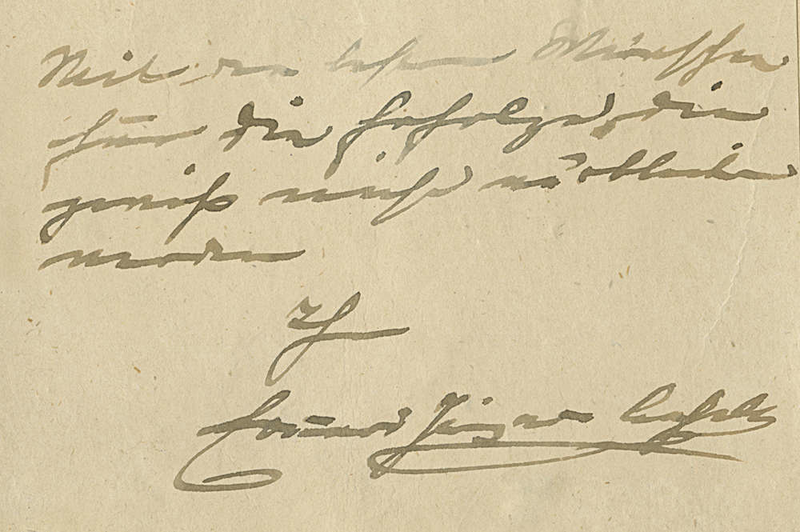 Mit den besten Wünschen
für die Erfolge, die
gewiß nicht ausbleiben
werden
Ihr
Eduard